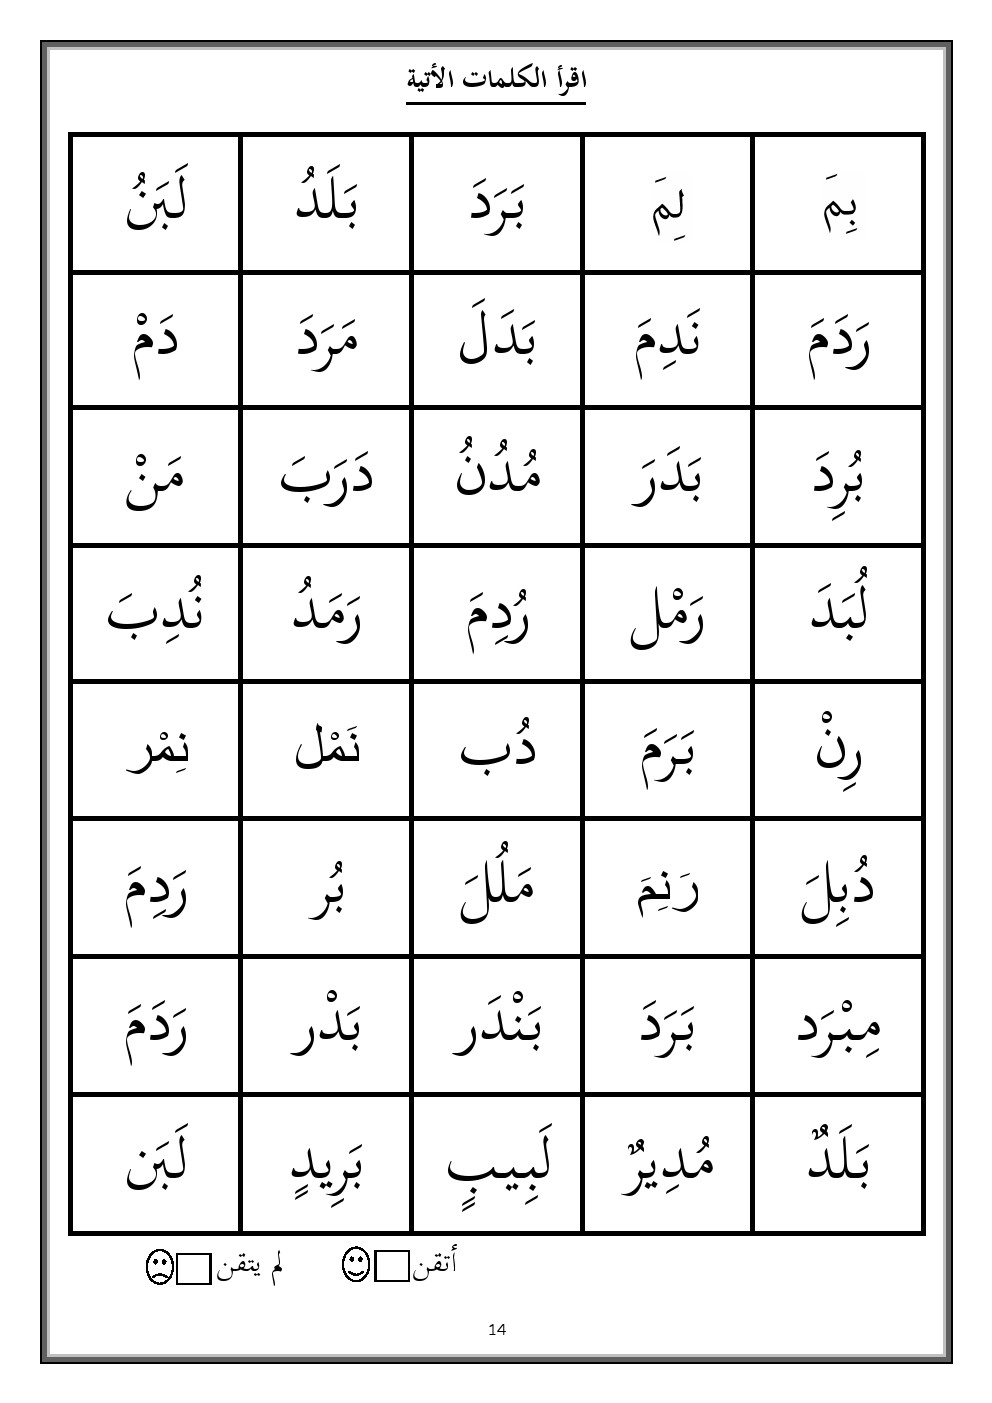 اقرأ الكلمات الأتية
بِمَ لِمَ بَرَدَ بَلَدُ لَبَنُ
رَدَمَ نَدِمَ بَدَلَ مَرَدَ دَمْ
بُرِدَ بَدَرَ مُدُنُ دَرَبَ مَنْ
لُبَدَ رَمْل رُدِمَ رَمَدُ نُدِبَ
رِنْ بَرَمَ دُب نَمْل نِمْر
دُبِلَ رَنِمَ مَلُلَ بُر رَدِمَ
مِبْرَد بَرَدَ بَنْدَر بَدْر رَدَمَ
بَلَدٌ مُدِيرٌ لَبِيبٍ بَرِيدٍ لَبَن
أتقن لم يتقن
14